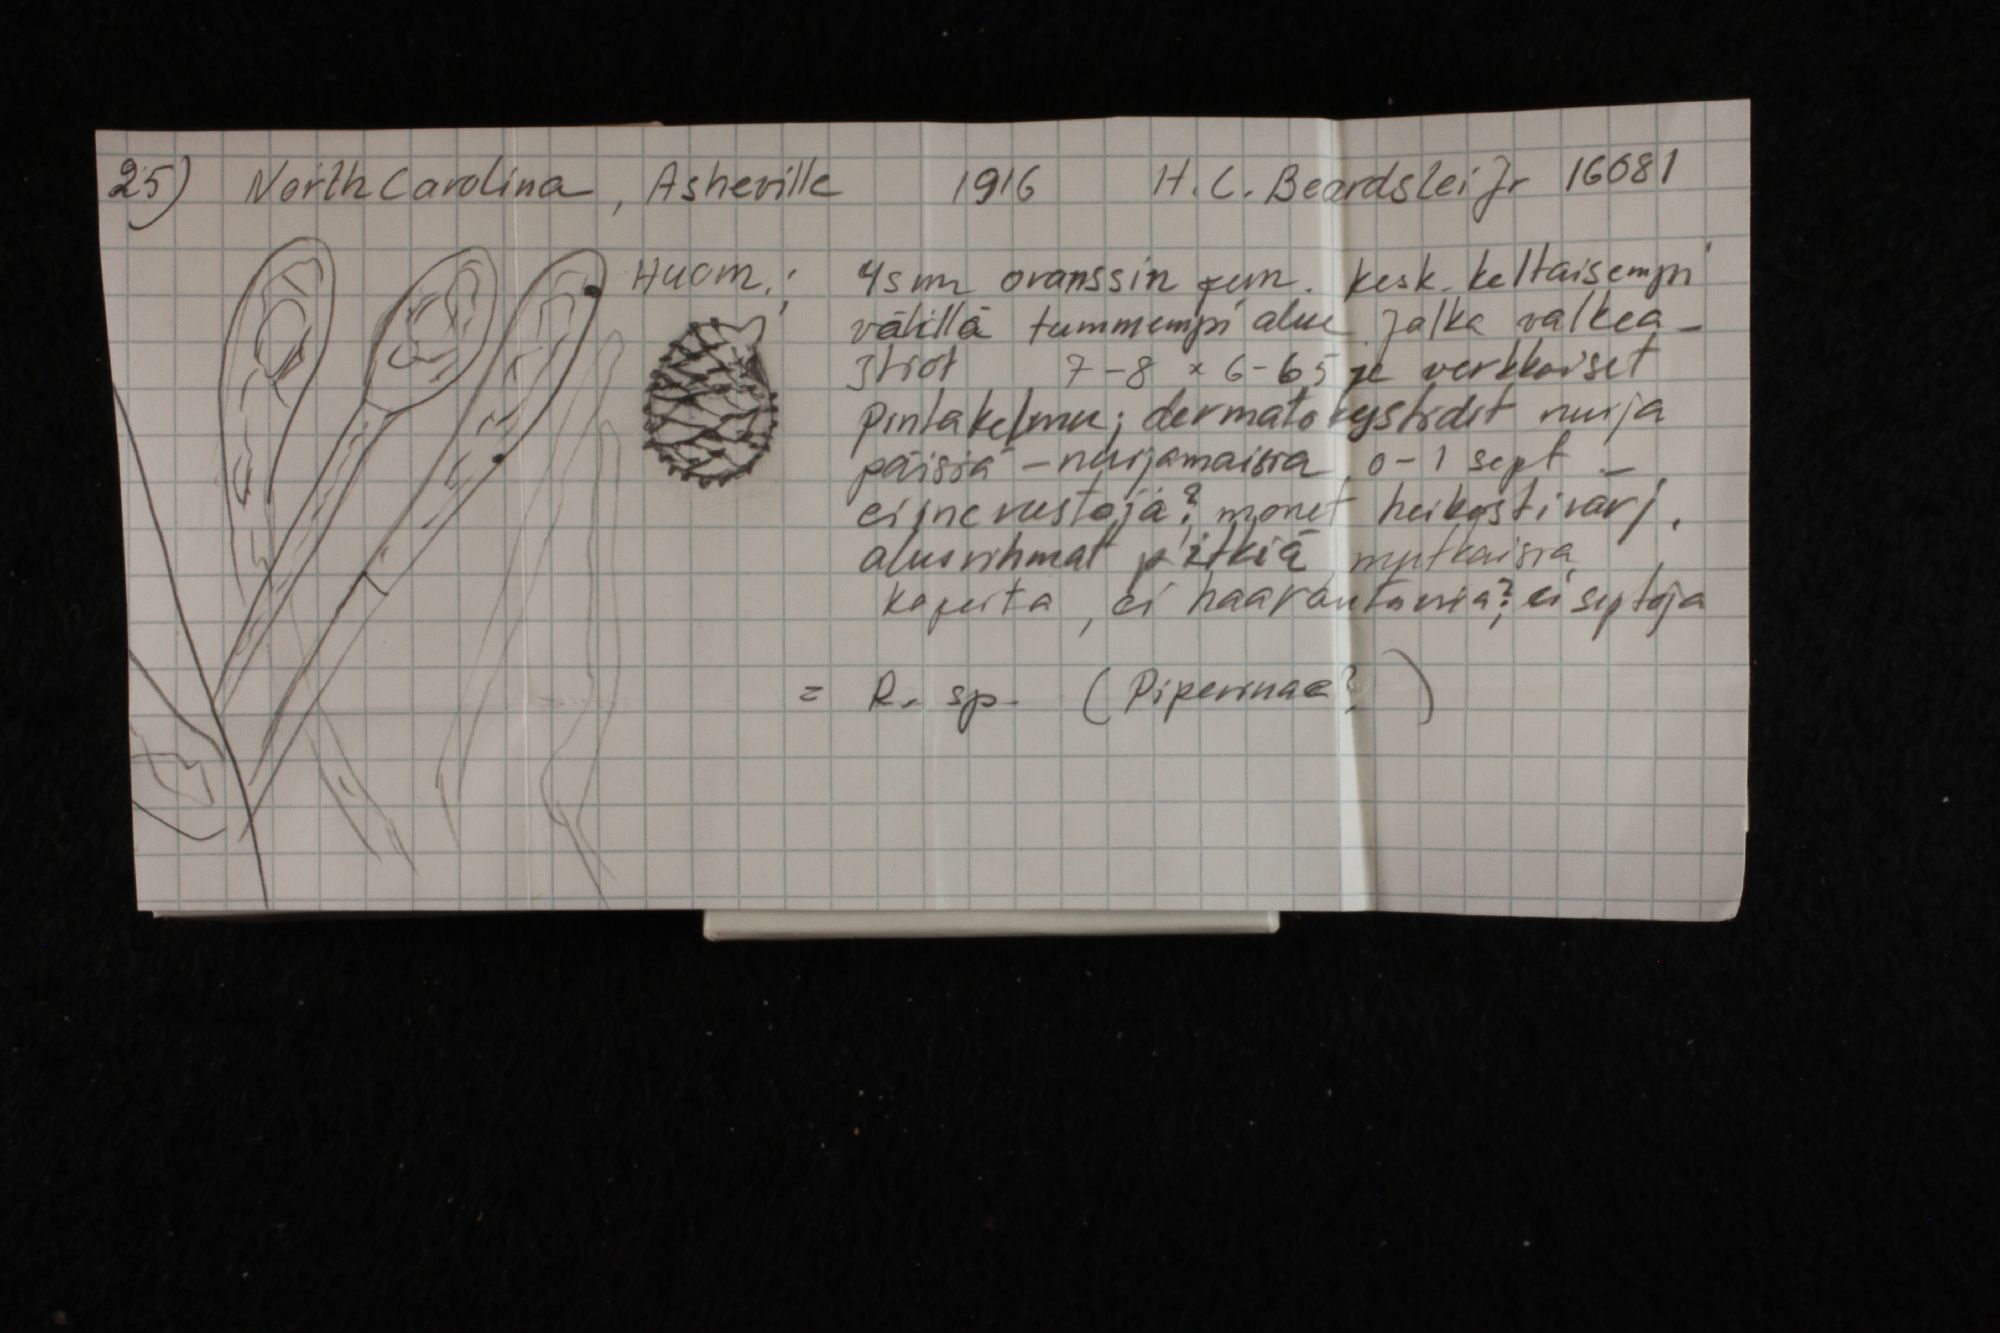 25) North Carolina, Asheville 1916 H.C. Beardslei Jr 16081
Huom.: 4 sm oranssin pun. kesk. keltaisempi
välillä tummempi alue jalka valkea –
Itiöt 7–8 × 6–6,5 µ verkkoiset
Pintakelmu; dermatokystidit nuija
päisiä – nuijamaisia 0–1 sept –
ei incrustoja? monet heikosti värj.
alusrihmat pitkiä mutkaisia
kapeita, ei haarautuvia? ei septoja
= R. sp. (Piperinae?)